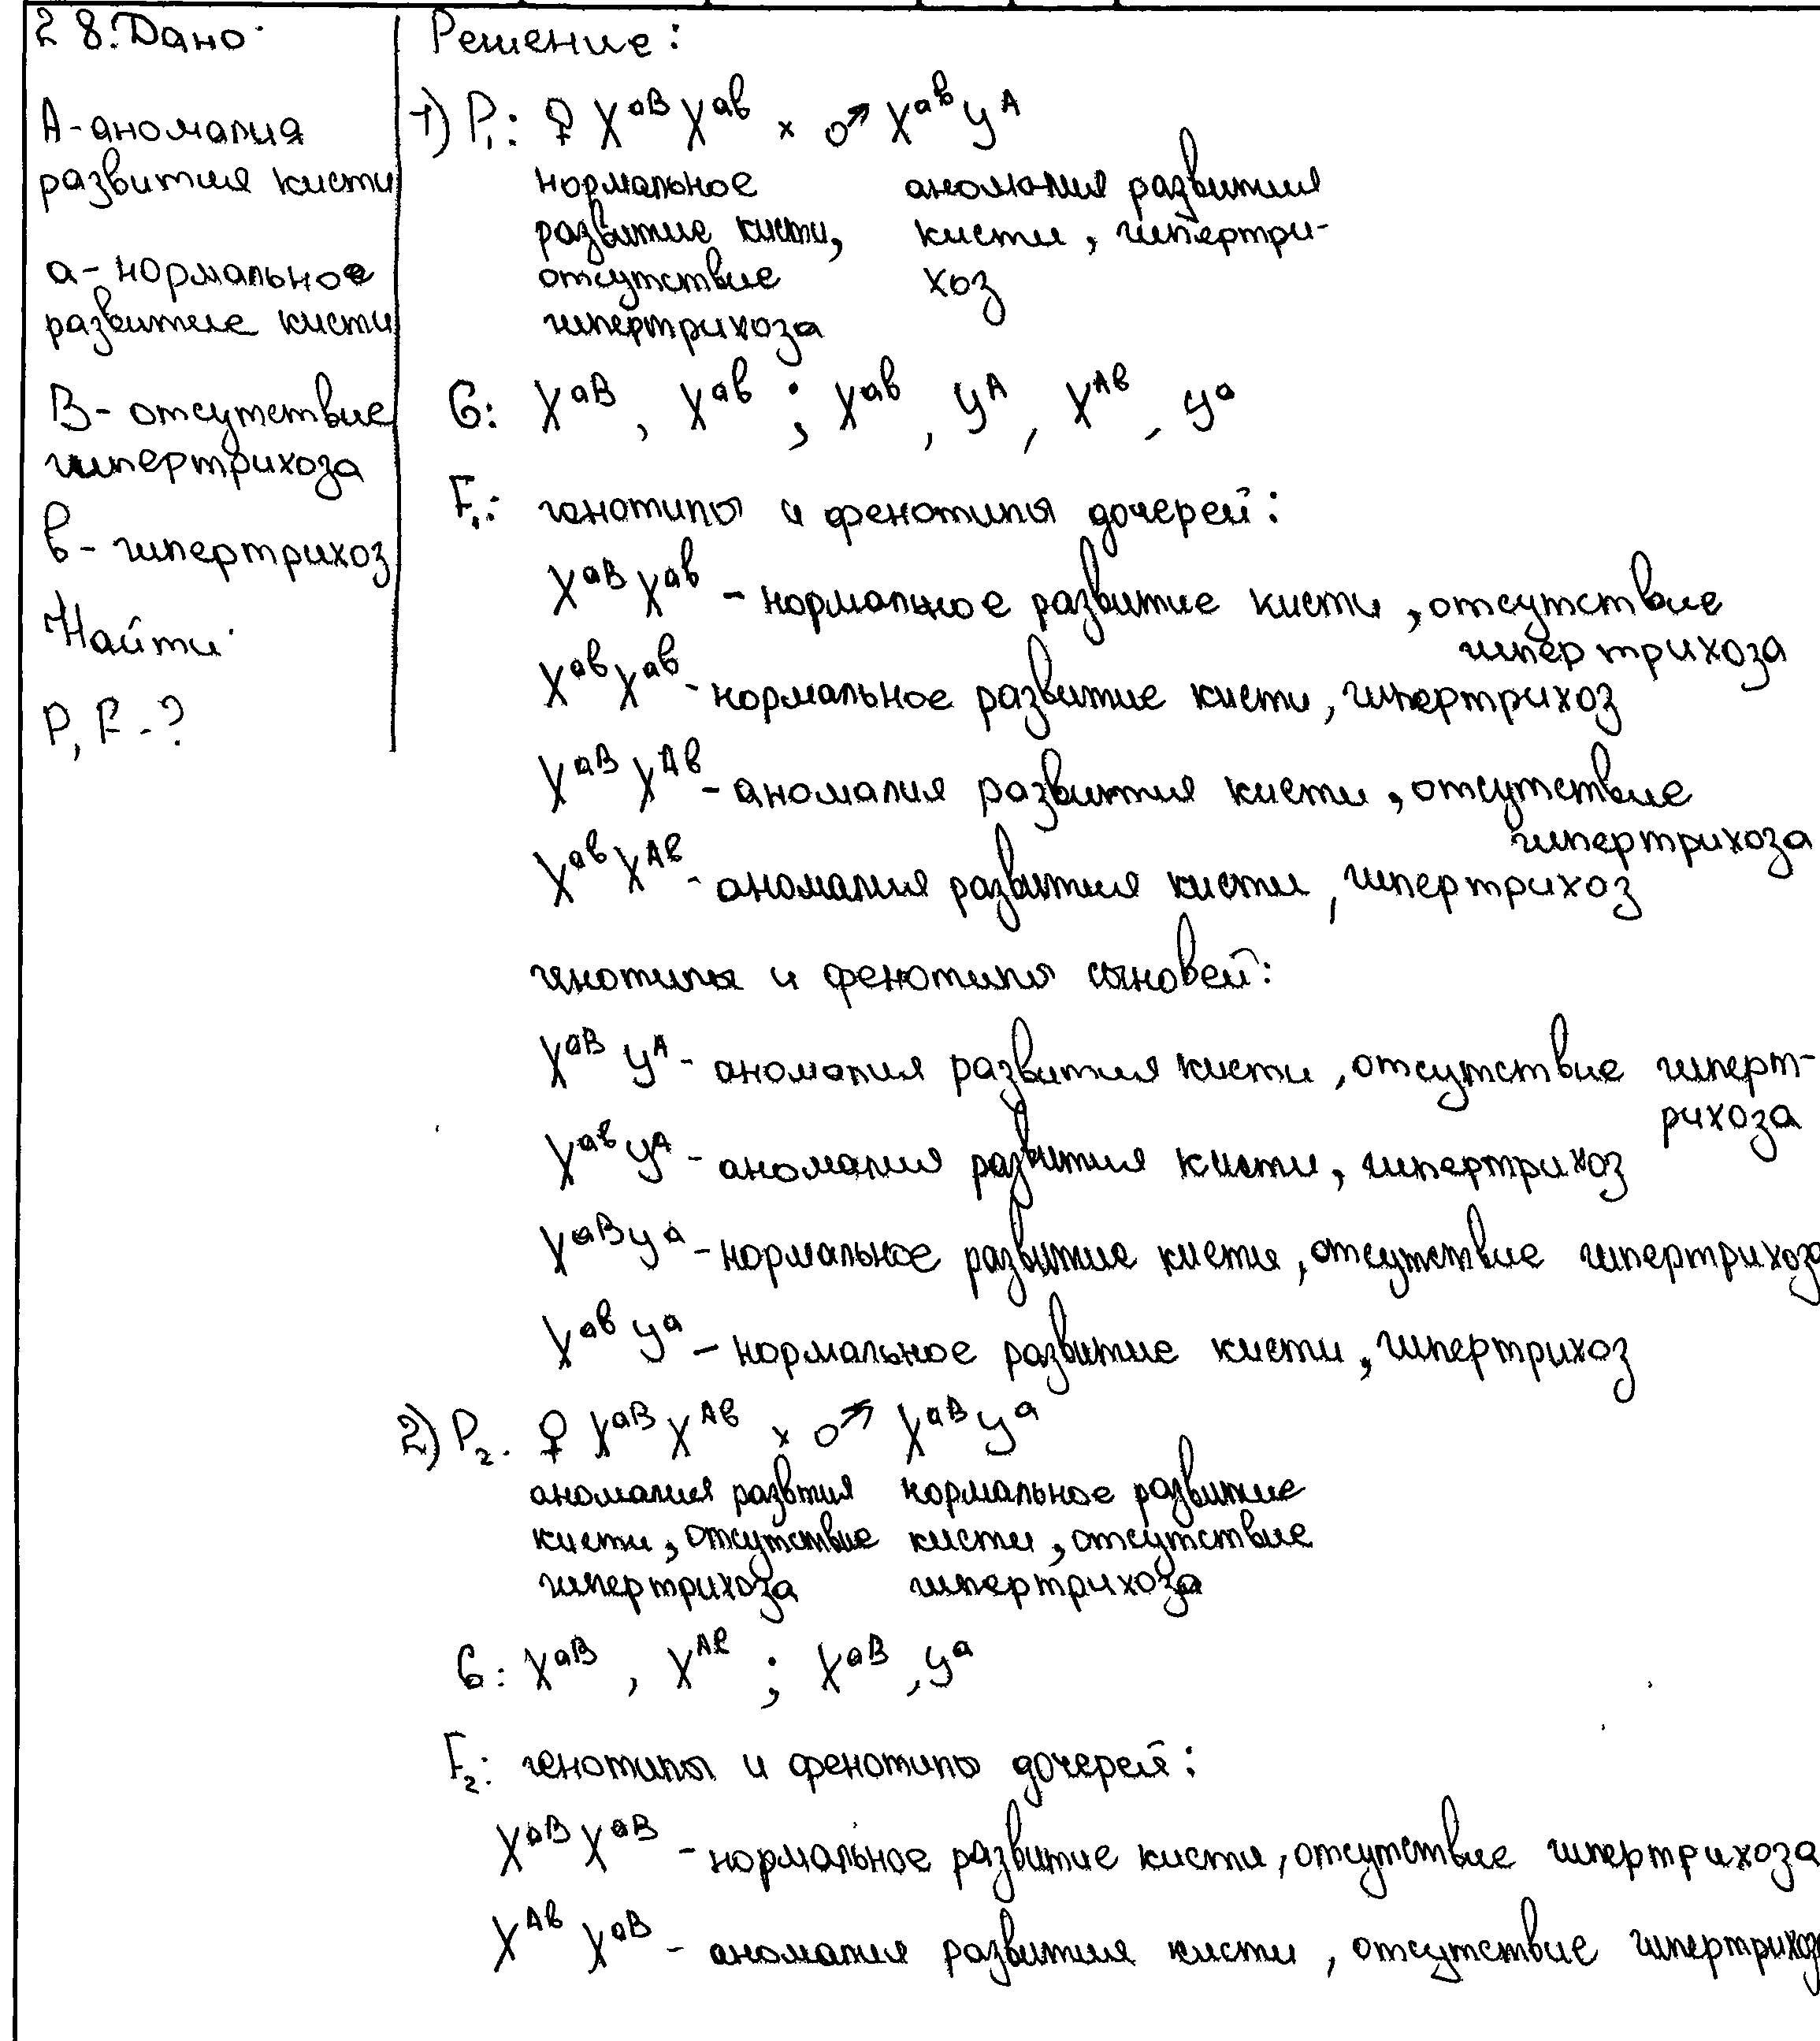 28. Дано:
А - аномалия
развития кисти
а - нормальное
развитие кисти
В - отсутствие
гипертрихоза
в - гипертрихоз
Найти:
P, F - ?
Решение:
1) P₁: ♀ XᵃᴮXᵃᵇ × ♂ XᵃᵇYᴬ
нормальное аномалия развития
развитие кисти, кисти, гипертри-
отсутствие хоз
гипертрихоза
G: Xᵃᴮ, Xᵃᵇ; Xᵃᵇ, Yᴬ, Xᴬᵇ, Yᵃ
F₁: генотипы и фенотипы дочерей:
XᵃᴮXᵃᵇ - нормальное развитие кисти, отсутствие
гипертрихоза
XᵃᵇXᵃᵇ - нормальное развитие кисти, гипертрихоз
XᵃᴮXᴬᵇ - аномалия развития кисти, отсутствие
гипертрихоза
XᵃᵇXᴬᵇ - аномалия развития кисти, гипертрихоз
генотипы и фенотипы сыновей:
XᵃᴮYᴬ - аномалия развития кисти, отсутствие гиперт-
рихоза
XᵃᵇYᴬ - аномалия развития кисти, гипертрихоз
XᵃᴮYᵃ - нормальное развитие кисти, отсутствие гипертрихоза
XᵃᵇYᵃ - нормальное развитие кисти, гипертрихоз
2) P₂. ♀ XᵃᴮXᴬᵇ × ♂ XᵃᴮYᵃ
аномалия развтия нормальное развитие
кисти, отсутствие кисти, отсутствие
гипертрихоза гипертрихоза
G: Xᵃᴮ, Xᴬᵇ; Xᵃᴮ, Yᵃ
F₂: генотипы и фенотипы дочерей:
XᵃᴮXᵃᴮ - нормальное развитие кисти, отсутствие гипертрихоза
XᴬᵇXᵃᴮ - аномалия развития кисти, отсутствие гипертрихоза